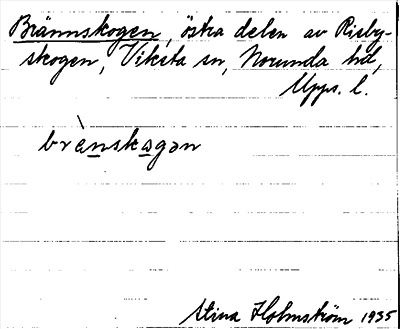 Brännskogen, östra delen av Risby-
skogen, Viksta sn, Norunda hd,
Upps. l.
brä̀nskogən
Stina Holmström 1935